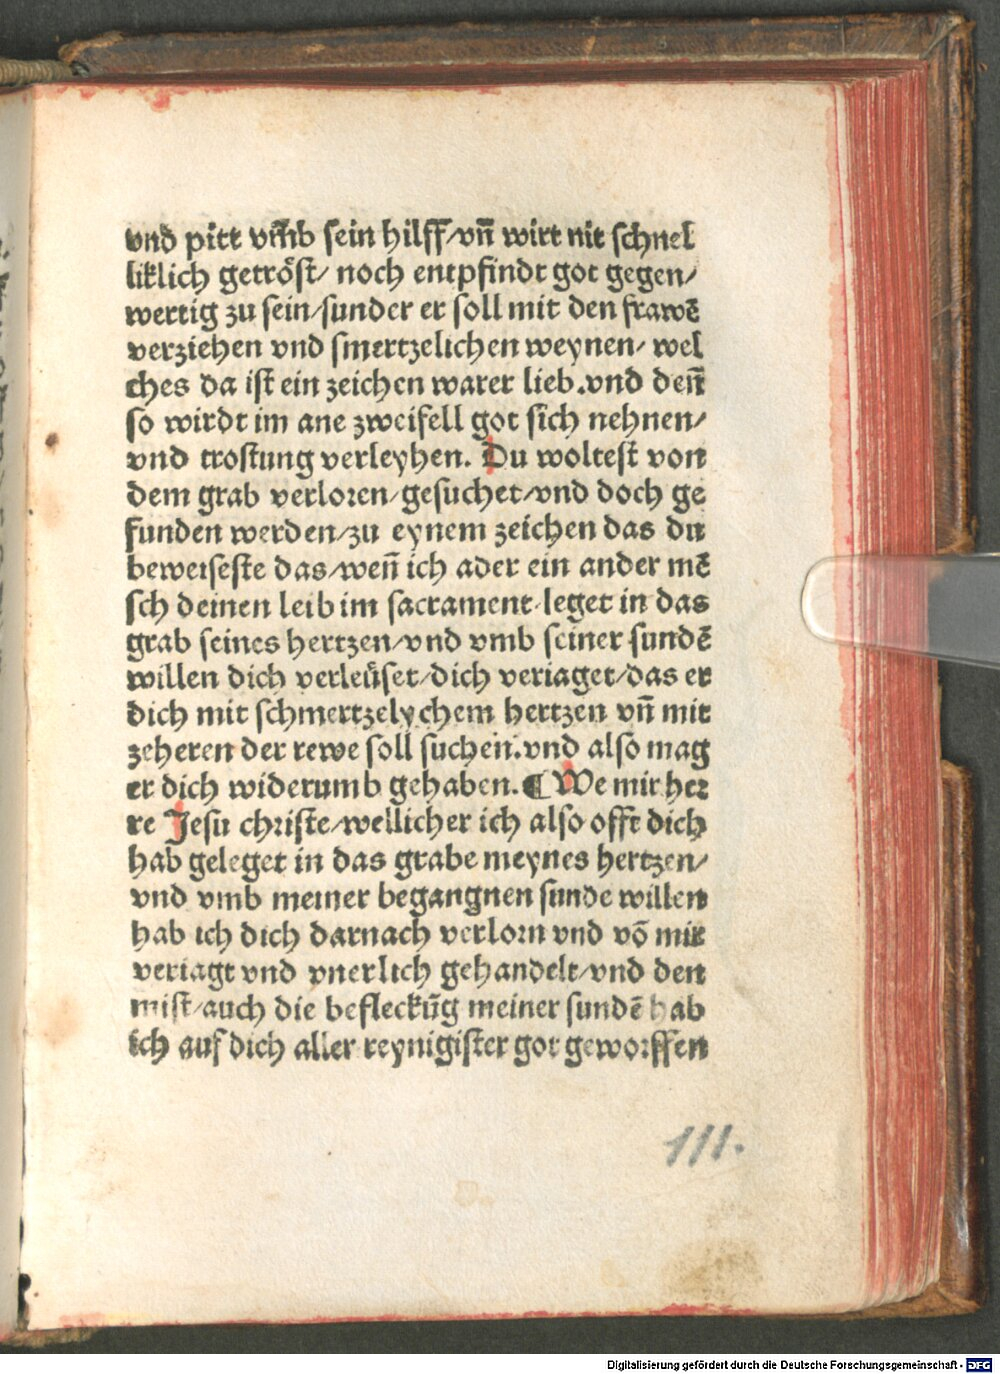 vnd pitt vm̄b sein hilff/vn̄ wirt nit schnel
liklich getröst/ noch entpfindt got gegen/
wertig zu sein/sunder er soll mit den frawē
verziehen vnd smertzelichen weynen/ wel
ches da ist ein zeichen warer lieb.vnd den̄
so wirdt im ane zweifell got sich nehnen/
vnd trostung verleyhen. Du woltest von
dem grab verloren/gesuchet/vnd doch ge
funden werden/zu eynem zeichen das du
beweiseste das/wen̄ ich ader ein ander mē
sch deinen leib im sacrament/leget in das
grab seines hertzen/vnd vmb seiner sundē
willen dich verleüset/dich veriaget/das er
dich mit schmertzelychem hertzen vn̄ mit
zeheren der rewe soll suchen.vnd also mag
er dich widerumb gehaben. ¶ We mir her
re Jesu christe/wellicher ich also offt dich
hab geleget in das grabe meynes hertzen/
vnd vmb meiner begangnen sunde willen
hab ich dich darnach verlorn vnd vō mir
veriagt vnd vnerlich gehandelt/vnd den
mist/auch die befleckūg meiner sundē hab
ich auf dich aller reynigister got geworffen
111.
Digitalisierung gefördert durch die Deutsche Forschungsgemeinschaft - DFG